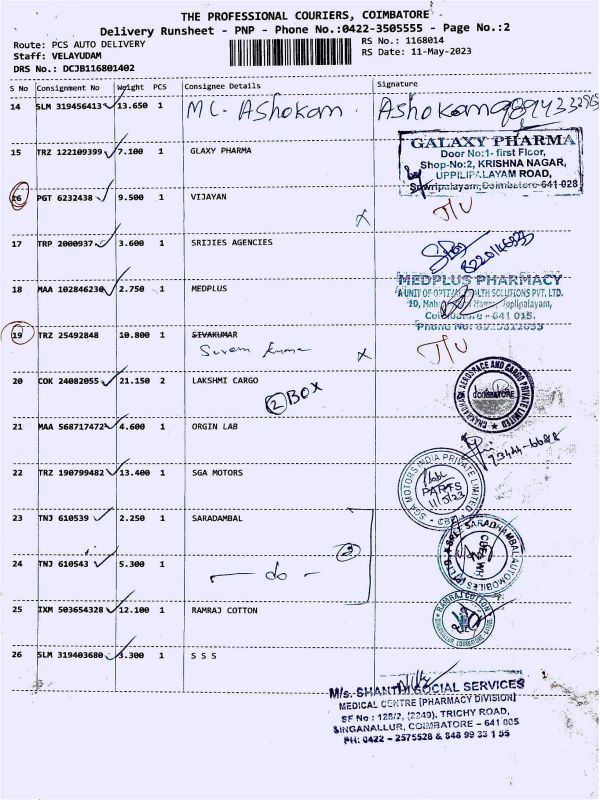 THE PROFESSIONAL COURIERS, COIMBATORE
Delivery Runsheet - PNP - Phone No.:0422-3505555 - Page No.:2
Route: PCS AUTO DELIVERY
RS No.: 1168014
Staff: VELAYUDAM
RS Date: 11-May-2023
DRS No.: DCJB116801402
S No Consignment No Weight PCS Consignee Details Signature
14 SLM 319456413 13.650 1 M C. Ashokan. Ashokan
15 TRZ 122109399 7.100 1 GLAXY PHARMA
GALAXY PHARMA
Door No:1- first Floor,
Shop-No:2, KRISHNA NAGAR,
UPPILIPALAYAM ROAD,
Sowripalayam,Coimbatore-641 028
16 PGT 6232438 9.500 1 VIJAYAN
17 TRP 2000937 3.600 1 SRIJIES AGENCIES
18 MAA 102846230 2.750 1 MEDPLUS
MEDPLUS PHARMACY
A UNIT OF OPTIVAL HEALTH SOLUTIONS PVT. LTD.
Coimbatore - 641 015.
19 TRZ 25492848 10.800 1 SIVAKUMAR
20 COK 24082055 21.150 2 LAKSHMI CARGO
2 BOX
AEROSPACE AND CARGO PRIVATE LIMITED
COIMBATORE
21 MAA 568717472 4.600 1 ORGIN LAB
22 TRZ 190799482 13.400 1 SGA MOTORS
SGA MOTORS INDIA PRIVATE LIMITED
PARTS
11/5/23
CBE
23 TNJ 610539 2.250 1 SARADAMBAL
SREE SARADHAMBAL AUTOMOBILES (P) LTD
24 TNJ 610543 5.300 1
- do -
25 IXM 503654328 12.100 1 RAMRAJ COTTON
RAMRAJ COTTON
26 SLM 319403680 3.300 1 S S S
M/s. SHANTHI SOCIAL SERVICES
MEDICAL CENTRE [PHARMACY DIVISION]
SF No : 128/2, (2249), TRICHY ROAD,
SINGANALLUR, COIMBATORE - 641 005
PH: 0422 - 2575528 & 848 99 33 1 55